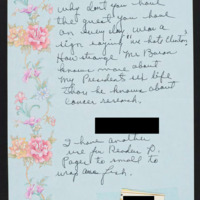 why don't you have
the guest you have
on every day wear a
sign saying "we hate Clinton"
How strange Mr Baron
knows more about
My President's sex life
than he knows about
cancer research.
I have another
use for Readers D.
Pages to small to
wrap fish.